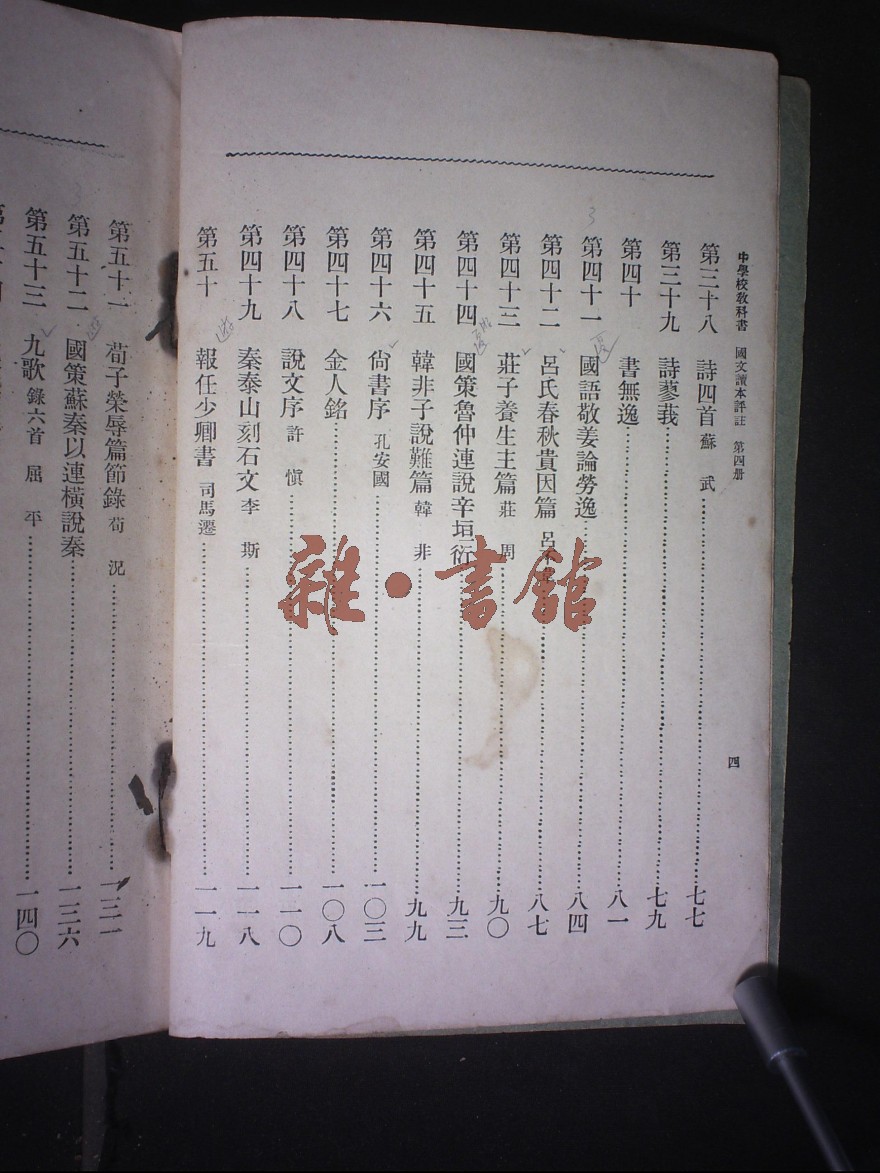 中學校教科書 國文讀本評註 第四册
四
第三十八 詩四首 蘇武 七七
第三十九 詩蓼莪 七九
第四十 書無逸 八一
第四十一 國語敬姜論勞逸 八四
第四十二 呂氏春秋貴因篇 呂不 八七
第四十三 莊子養生主篇 莊周 九〇
第四十四 國策魯仲連說辛垣衍 九三
第四十五 韓非子說難篇 韓非 九九
第四十六 尙書序 孔安國 一〇三
第四十七 金人銘 一〇八
第四十八 說文序 許愼 一一〇
第四十九 秦泰山刻石文 李斯 一一八
第五十 報任少卿書 司馬遷 一一九
第五十一 荀子榮辱篇節錄 荀況 一三一
第五十二 國策蘇秦以連橫說秦 一三六
第五十三 九歌 錄六首 屈平 一四〇
雜·書館